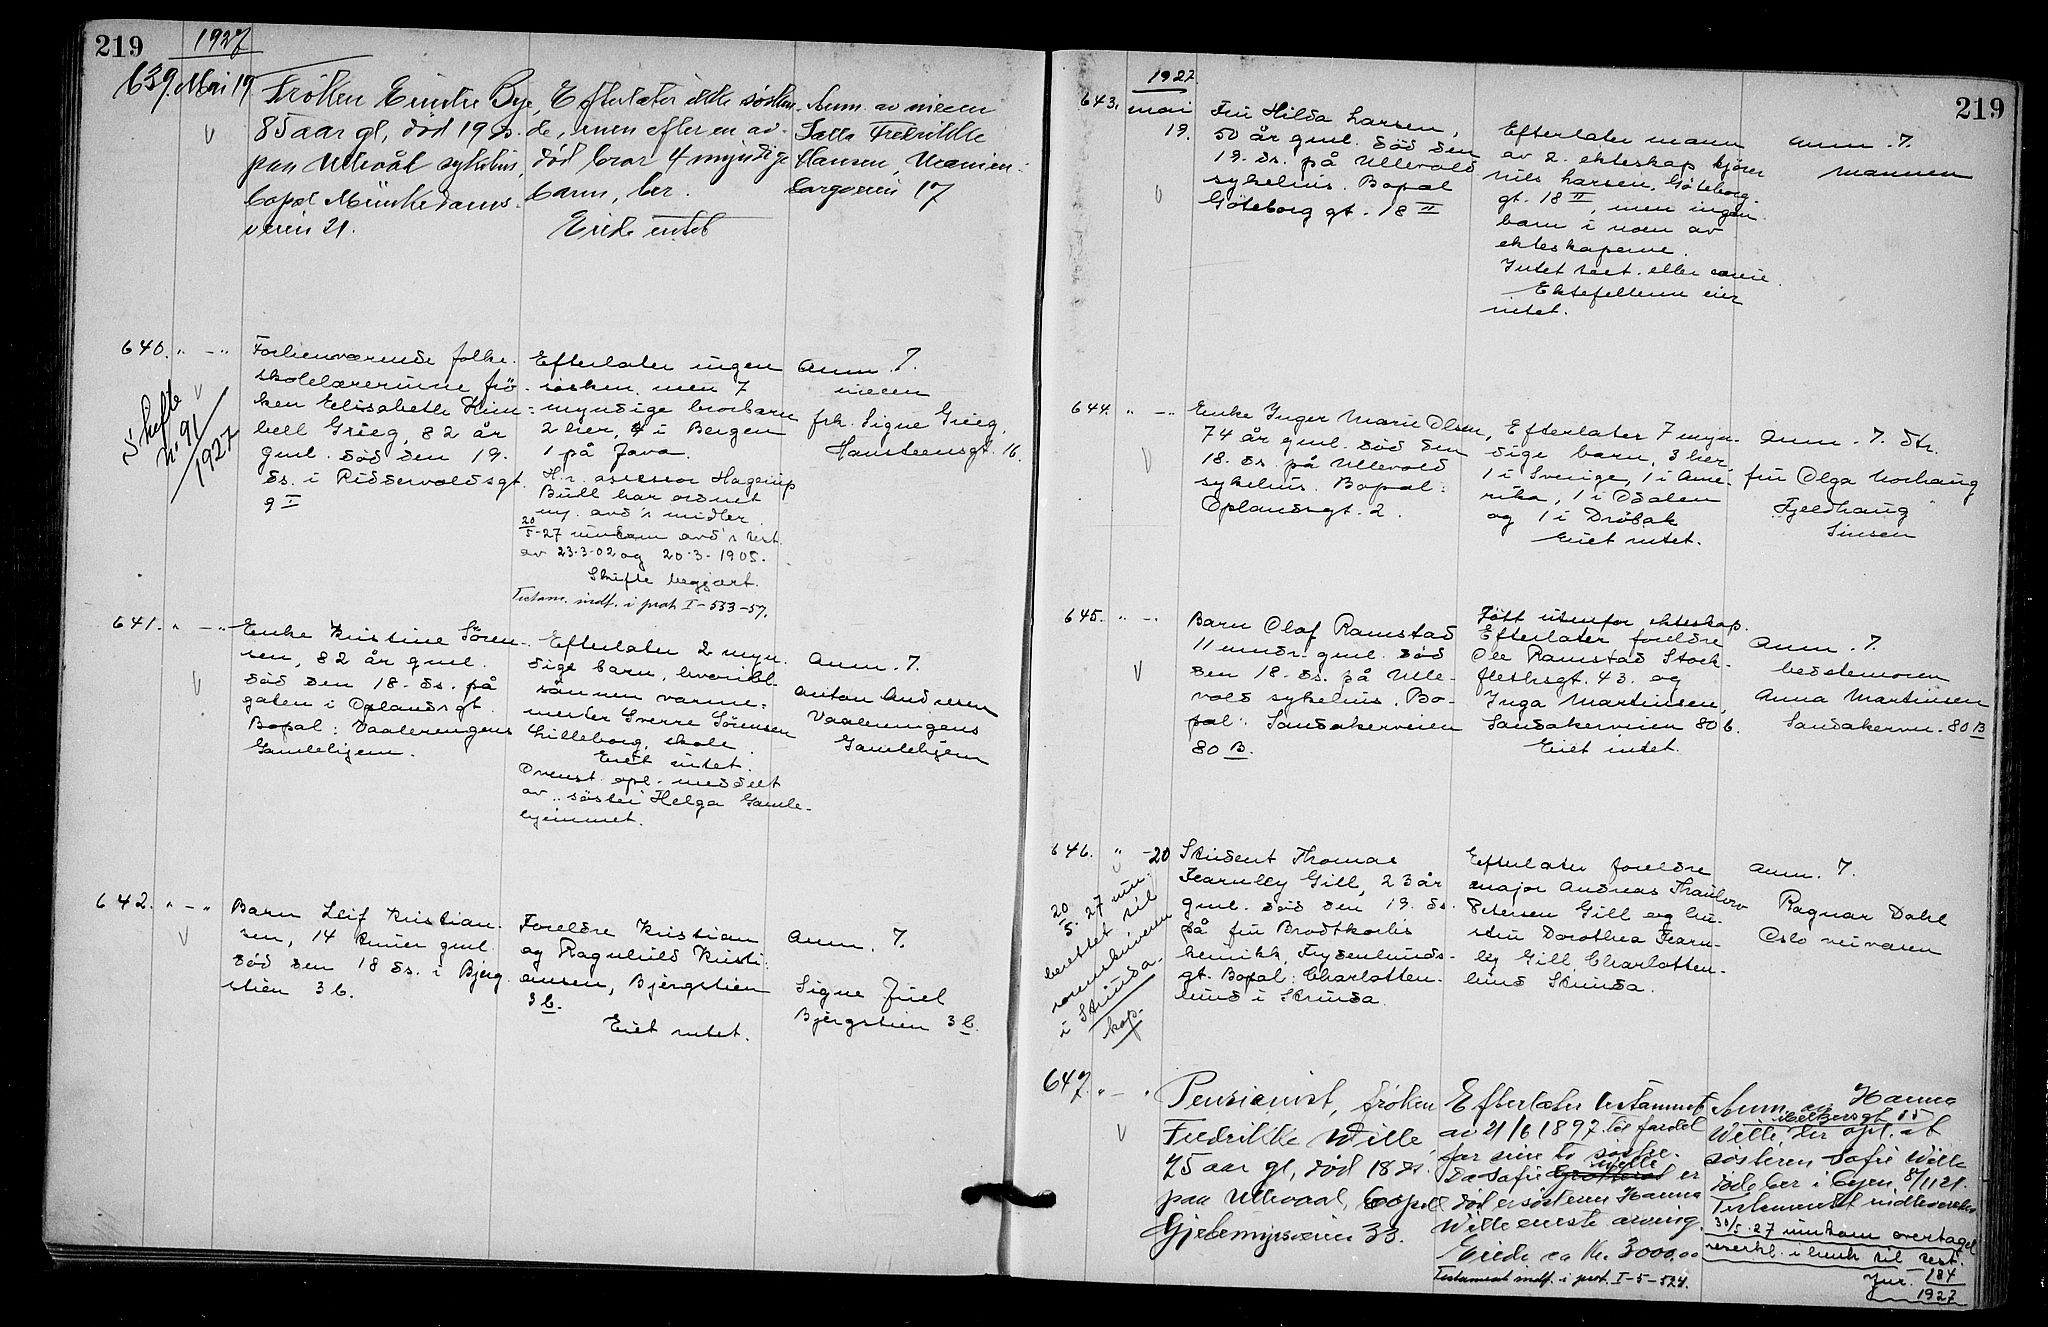 219
1927
639. Mai 19
Frøken Emilie Bye,
85 aar gl, død 19 ds.
paa Ullevål sykehus,
bopæl Munkedams-
veien 21.
Efterlater ikke søsken-
de, men efter en av-
død bror 4 myndige
barn, her.
Eiede intet
Anm. av niecen
Fredrikke
Hansen, Uranien-
borgveien 17
640. " - "
Skifte
nr 91/1927
Forhenværende folke-
skolelærerinne frö-
ken Elisabeth Kim-
bell Grieg, 82 år
gml. död den 19.
ds. i Riddervoldsgt.
9 I
Efterlater ingen
sösken, men 7
myndige brorbarn
2 her, 4 i Bergen
1 på Java.
H.r. assessor Hagerup
Bull har ordnet
m. avd's midler.
20/5-27 innkom avd's test.
av 23-3-02 og 20-3-1905.
Skifte begjært.
Testam. indf. i prot I-533-57.
Anm. 7.
niecen
frk. Signe Grieg,
Hansteensgt. 16.
641. " - "
Enke Kristine Sören-
sen, 82 år gml.
död den 18. ds. på
gaten i Oplandsgt.
Bopal: Vaalerengens
Gamlehjem.
Efterlater 2 myn-
dige barn, hvoribl.
sönnen varme-
mester Sverre Sörensen
Lilleborg skole.
Eiet intet.
Ovenst. opl. meddelt
av "söster" Helga Gamle-
hjemmet.
Anm. 7.
Anton Andresen
Vaalerengens
Gamlehjem
642. " - "
Barn Leif Kristian-
sen, 14 timer gml.
död den 18 ds. i Bjerg-
stien 3 b.
Foreldre Kristian
og Ragnhild Kristi-
ansen, Bjergstien
3 b.
Eiet intet.
Anm. 7.
Signe Juel
Bjergstien 3 b.
219
1927
643. mai
19.
Fru Hilda Larsen,
50 år gml. död den
19. ds. på Ullevold
sykehus. Bopal
Göteborg gt. 18 II
Efterlater mann
av 2. ekteskap kjörer
Nils Larsen, Göteborg-
gt. 18 II, men ingen
barn i noen av
ekteskapene.
Intet test. eller
Ektefellene eier
intet.
Anm. 7.
mannen
644. " - "
Enke Inger Marie Olsen,
74 år gml. död den
18. ds. på Ullevold
sykehus. Bopal:
Oplandsgt. 2.
Efterlater 7 myn-
dige barn, 3 her.
1 i Sverige, 1 i Ame-
rika, 1 i Odalen
og 1 i Dröbak
Eiet intet.
Anm. 7. dtr.
fru Olga Norhaug
Fjeldhaug
Sinsen
645. " - "
Barn Olaf Ramstad
11 mndr. gml. död
den 18. ds. på Ulle-
vold sykehus. Bo-
pal: Sandakerveien
80 B.
Född utenfor ekteskap.
Efterlater foreldre
Ole Ramstad Stock-
flethsgt. 43. og
Inga Martinsen,
Sandakerveien 80 b.
Eiet intet.
Anm. 7.
bedstemoren
Anna Martinsen
Sandakervn. 80 B
646. " - 20
20/5-27 inn-
berettet til
sorenskriveren
i Strinda.
kop.
Student Thomas
Fearnley Gill, 23 år
gml. död den 19. ds.
på fru Brodtkorbs
klinikk, Frydenlunds-
gt. Bopal: Charlotten-
lund i Strinda.
Efterlater foreldre
major Andreas Thaulow
Petersen Gill og hu-
stru Dorothea Fearn-
ley Gill Charlotten-
lund Strinda.
Anm. 7.
Ragnar Dahl
Oslo veivesen
647. " - "
Pensionist, frøken
Fredrikke Wille
75 aar gl, død 18 ds.
paa Ullevaal, bopæl
Gjetemyrsveien 33.
Efterlater testament
av 21/6 1897 til fordel
for sine to søstre.
Da Sofie Wille er
død er søsteren Hanna
Wille eneste arving.
Eiede ca Kr. 3000.00
Testament indf. i prot. I-5-524.
Anm. av Hanna
Wille, der opl. at
søsteren Sofie Wille
døde her i byen 8/11 21.
Testamentet indleveres
30/5-27 innkom overtagel-
seserkl. i henh. til test.
Jnr. 184
1927